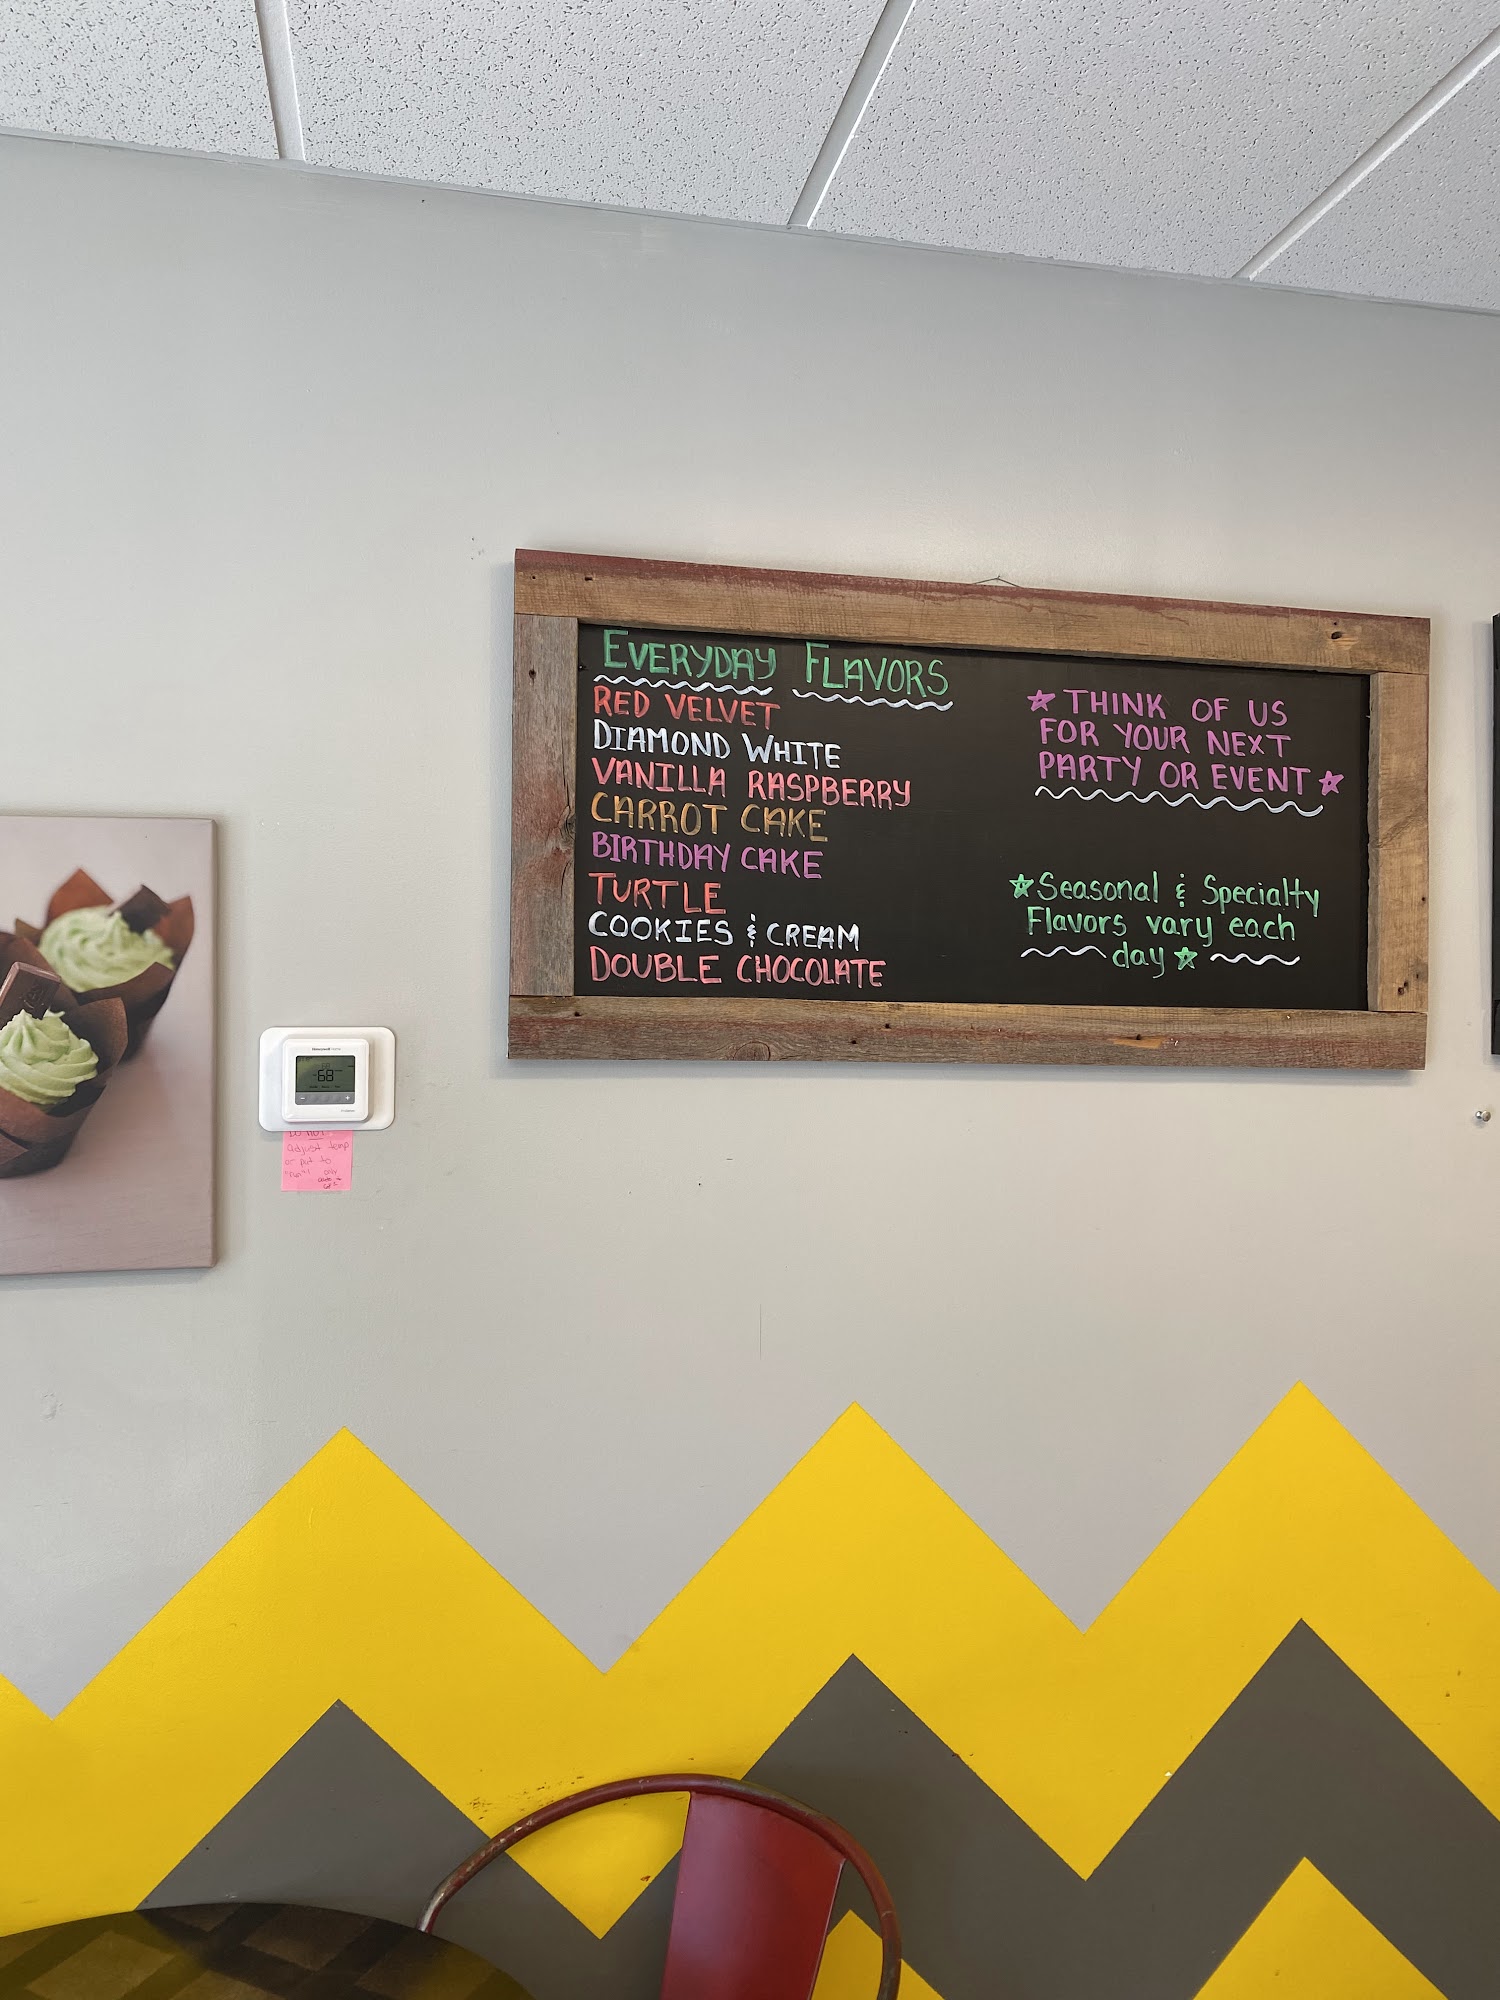 EVERYDAY FLAVORS
RED VELVET
DIAMOND WHITE
VANILLA RASPBERRY
CARROT CAKE
BIRTHDAY CAKE
TURTLE
COOKIES & CREAM
DOUBLE CHOCOLATE
THINK OF US
FOR YOUR NEXT
PARTY OR EVENT
Seasonal & Specialty
Flavors vary each
day
Honeywell Home
68
DO NOT
adjust temp
or put to